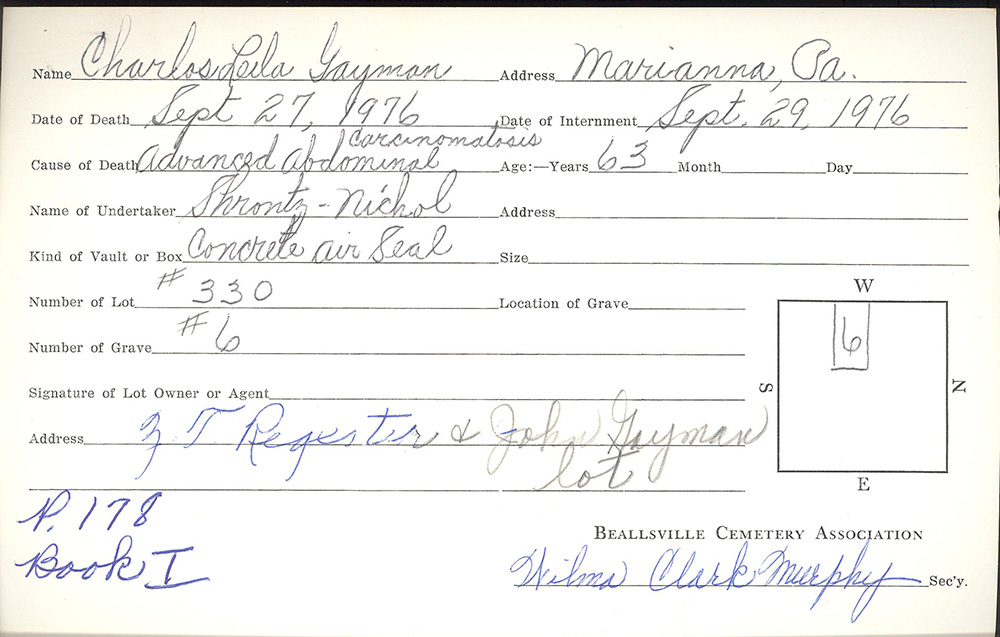 Name Charlos Leila Gayman Address Marianna, Pa.
Date of Death Sept 27, 1976 Date of Internment Sept. 29, 1976
Carcinomatosis
Cause of Death Advanced Abdominal Age:—Years 63 Month Day
Name of Undertaker Shrontz-Nichol Address
Kind of Vault or Box Concrete air Seal Size
Number of Lot #330 Location of Grave
Number of Grave #6
W
6
S N
E
Signature of Lot Owner or Agent
Address Z T Regester & John Gayman
lot
P. 178
Book I
BEALLSVILLE CEMETERY ASSOCIATION
Wilma Clark Murphy Sec'y.